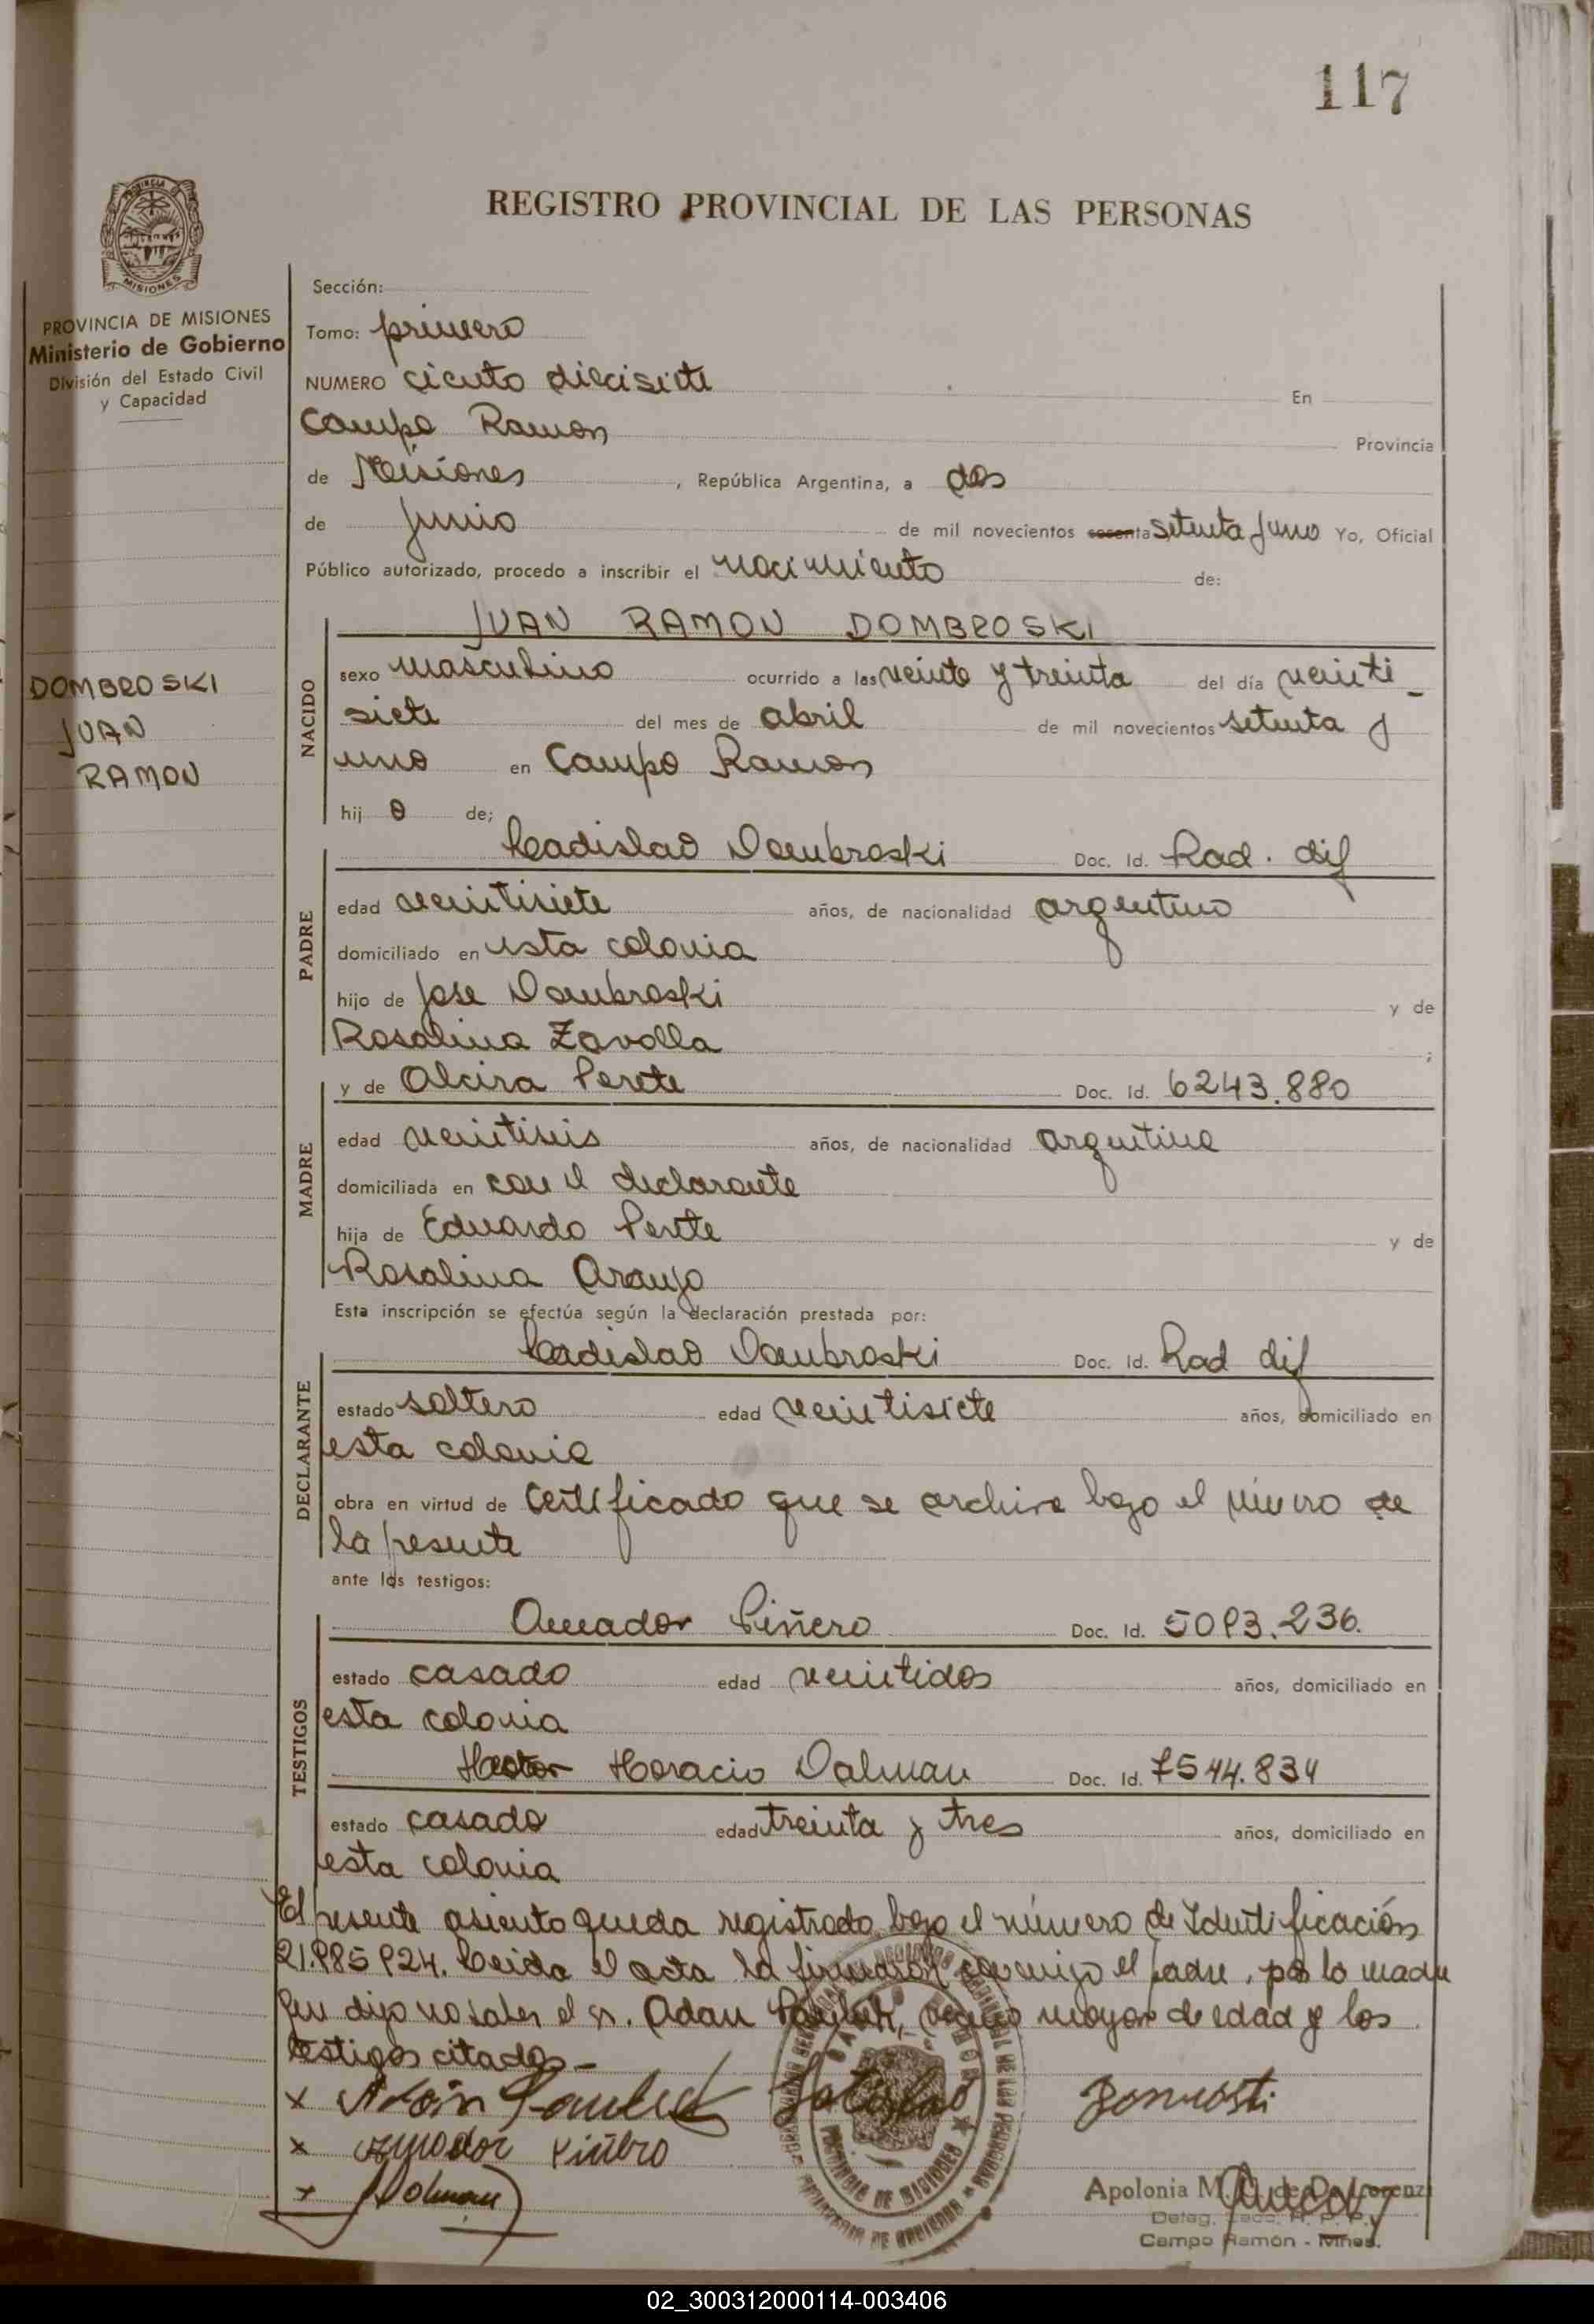 117
REGISTRO PROVINCIAL DE LAS PERSONAS
PROVINCIA DE MISIONES
Ministerio de Gobierno
División del Estado Civil
y Capacidad
Sección:
Tomo: primero
NUMERO ciento diecisiete En
Campo Ramon Provincia
de Misiones, República Argentina, a dos
de Junio de mil novecientos sesenta setenta y uno Yo, Oficial
Público autorizado, procedo a inscribir el nacimiento de:
JUAN RAMON DOMBROSKI
DOMBROSKI
JUAN
RAMON
NACIDO
sexo masculino ocurrido a las veinte y treinta del día veinti-
siete del mes de abril de mil novecientos setenta y
uno en Campo Ramon
hijo de;
PADRE
Ladislao Dombroski Doc. Id. Rad. dif
edad veintisiete años, de nacionalidad argentino
domiciliado en esta colonia
hijo de Jose Dombroski y de
Rosalina Zavolla;
MADRE
y de Alcira Perete Doc. Id. 6243.880
edad veintiseis años, de nacionalidad argentina
domiciliada en con el declarante
hija de Eduardo Perete y de
Rosalina Araujo
Esta inscripción se efectúa según la declaración prestada por:
DECLARANTE
Ladislao Dombroski Doc. Id. Rad dif
estado soltero edad veintisiete años, domiciliado en
esta colonia
obra en virtud de Certificado que se archiva bajo el número de
la presente
ante los testigos:
TESTIGOS
Amador Piñero Doc. Id. 5093.236.
estado casado edad veintidos años, domiciliado en
esta colonia
Hector Horacio Dalman Doc. Id. 7544.834
estado casado edad treinta y tres años, domiciliado en
esta colonia
El presente asiento queda registrado bajo el número de Identificación
21.985924. Leida el acta la firmaron conmigo el padre, por la madre
que dijo no saber el sr. Adan vecino mayor de edad y los
testigos citados-
x Adan
x Amador Piñero
x Dalman
PROVINCIA DE MISIONES
Apolonia M.
Campo Ramón - Mnes.
02_300312000114-003406